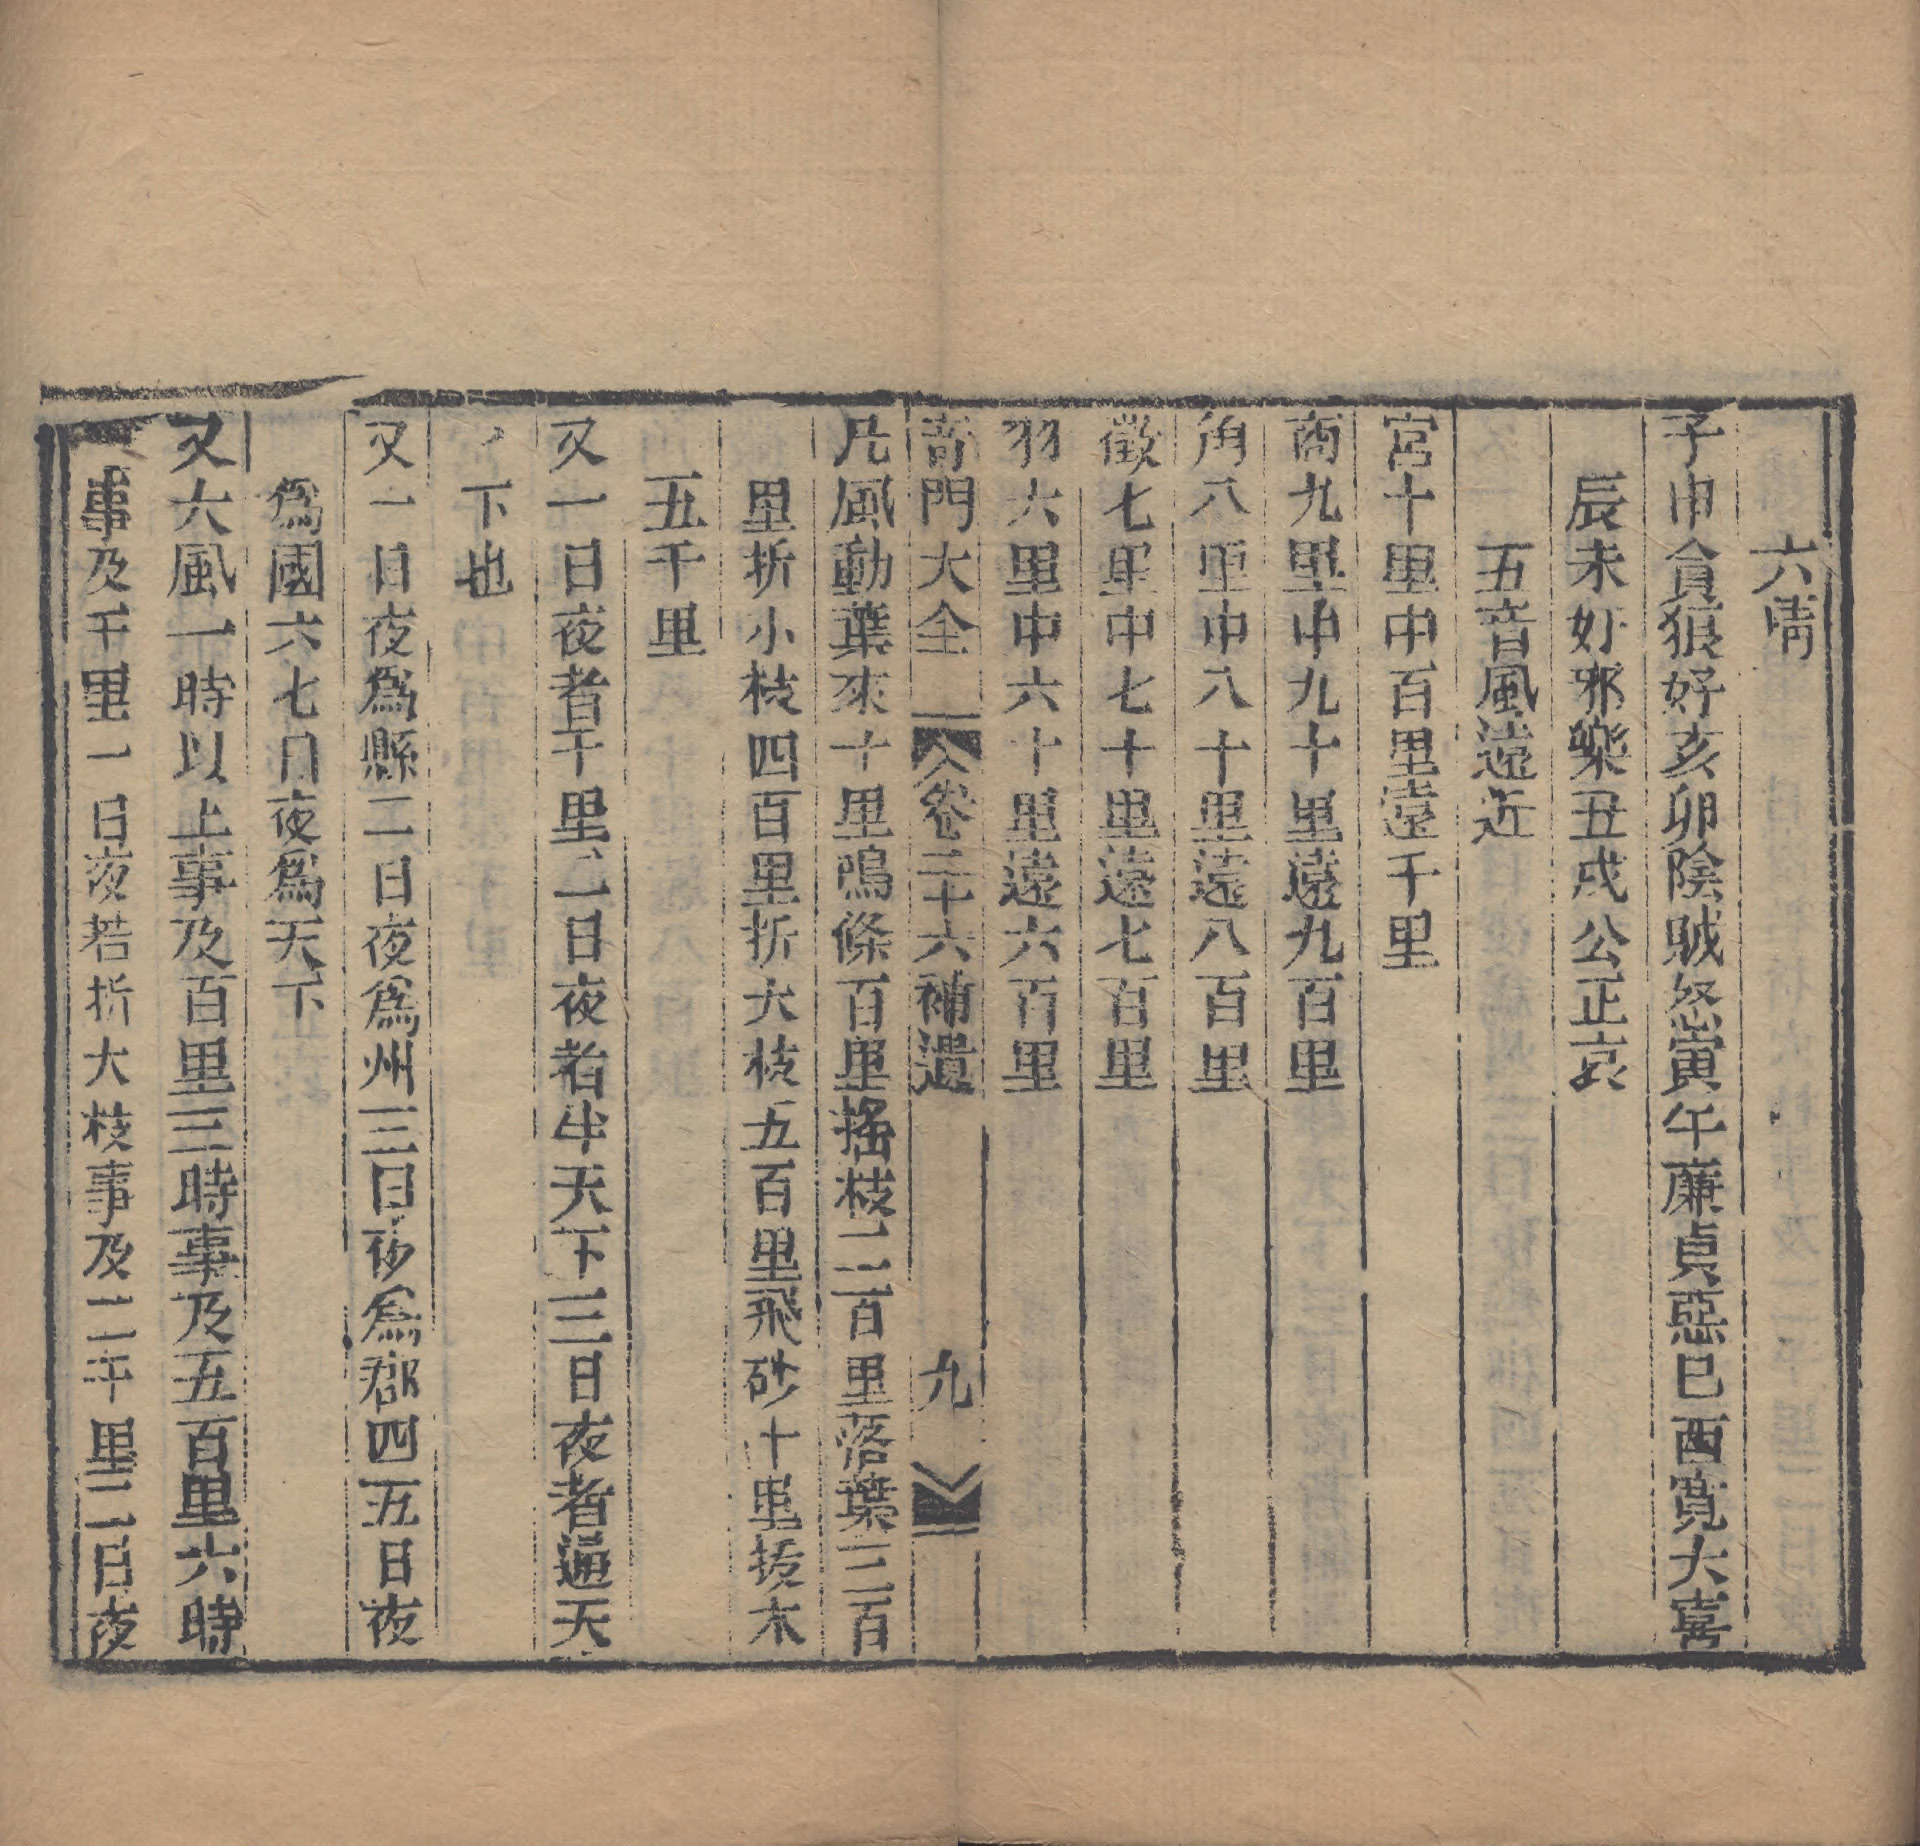 六情
子申貪狼好亥卯陰賊怒寅午廉貞惡巳酉寬大喜
辰未奸邪樂丑戌公正哀
五音風遠近
宮十里中百里遠千里
商九里中九十里遠九百里
角八里中八十里遠八百里
徵七里中七十里遠七百里
羽六里中六十里遠六百里
奇門大全 卷三十六補遺 九
凡風動葉來十里鳴條百里搖枝二百里落葉三百
里折小枝四百里折大枝五百里飛砂十里拔木
五千里
又一日夜者千里二日夜者半天下三日夜者通天
下也
又一日夜爲縣二日夜爲州三日夜爲郡四五日夜
爲國六七日夜爲天下
又大風一時以上事及百里三時事及五百里六時
事及千里一日夜若折大枝事及二千里二日夜